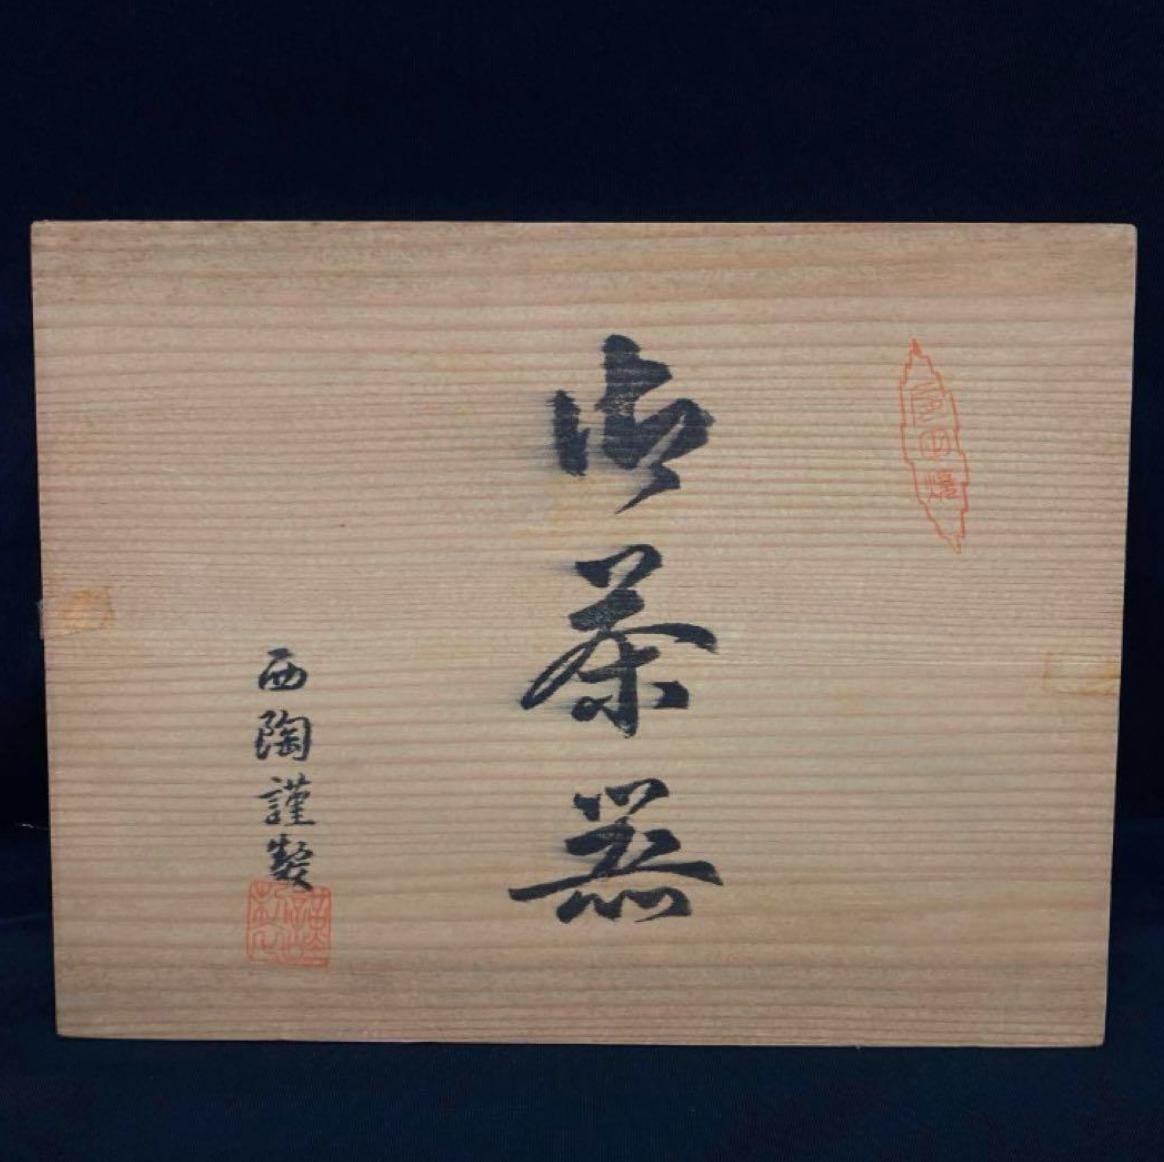 御茶器
西陶謹製